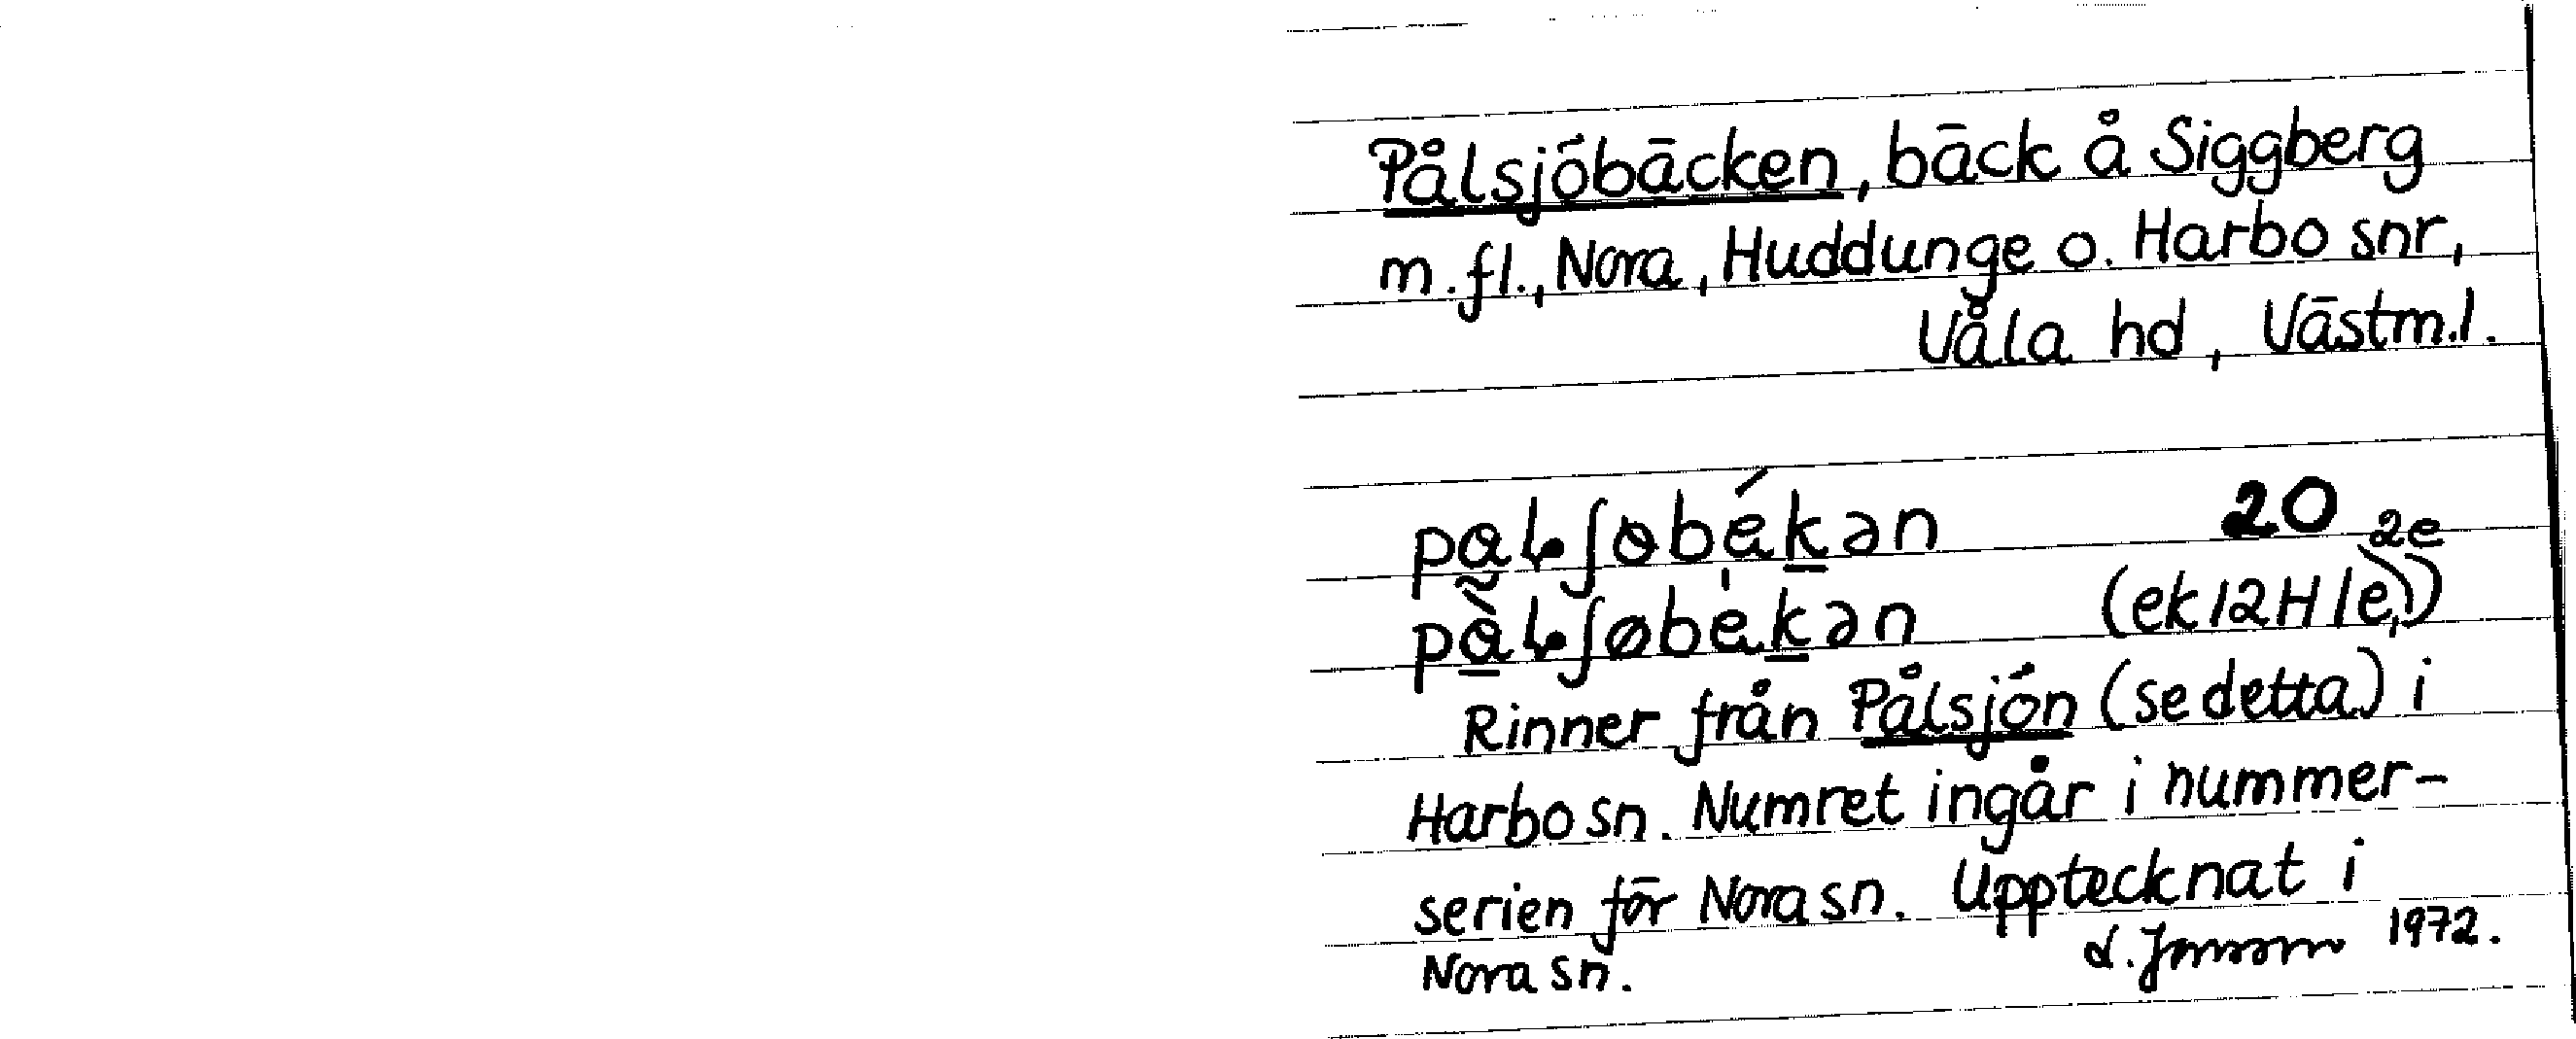 Pålsjöbäcken, bäck å Siggberg
m.fl., Nora, Huddunge o. Harbo snr,
Våla hd, Västm.l.
20 2e
(ek 12H 1e,)
Rinner från Pålsjön (se detta) i
Harbo sn. Numret ingår i nummer-
serien för Nora sn. Upptecknat i
Nora sn. 1972.